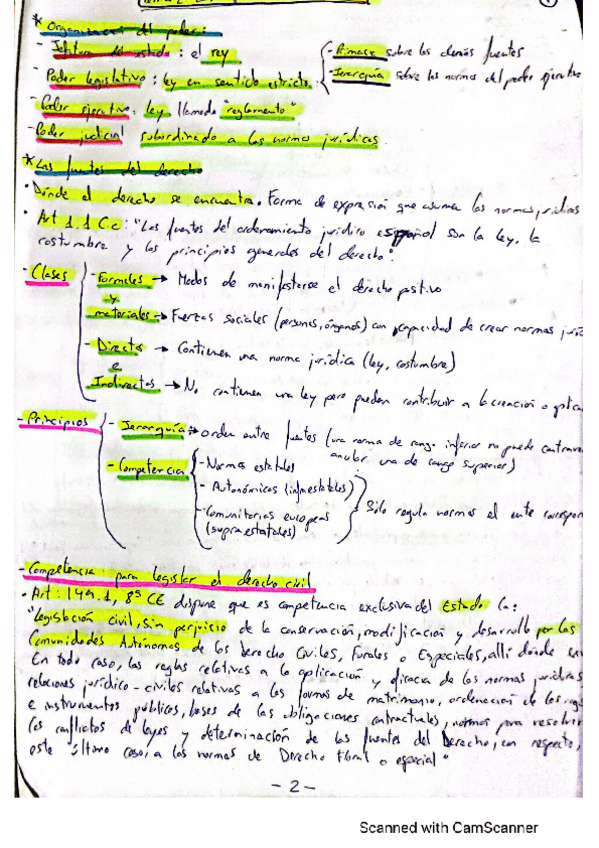 * Organización del poder:
- Jefatura del estado: el rey
- Primacía sobre las demás fuentes
- Poder legislativo: ley en sentido estricto
- Jerarquía sobre las normas del poder ejecutivo
- Poder ejecutivo: ley llamada "reglamento"
- Poder judicial subordinado a las normas jurídicas
* Las fuentes del derecho
· Dónde el derecho se encuentra. Forma de expresión que asumen las normas
· Art 1.1 Cc: "Las fuentes del ordenamiento jurídico español son la ley, la
costumbre y los principios generales del derecho".
- Clases
- Formales → Modos de manifestarse el derecho positivo
y
materiales → Fuerzas sociales (personas, órganos) con capacidad de crear normas
- Directas → Contienen una norma jurídica (ley, costumbre)
e
Indirectas → No contienen una ley pero pueden contribuir a la creación o
- Principios
- Jerarquía: → orden entre fuentes (una norma de rango inferior no puede
anular una de rango superior)
- Competencia
- Normas estatales
- Autonómicas (infraestatales)
- Comunitarias europeas
(supraestatales)
Sólo regula normas el ente
- Competencia para legislar el derecho civil
· Art: 149.1, 8º CE dispone que es competencia exclusiva del Estado la:
"legislación civil, sin perjuicio de la conservación, modificación y desarrollo por las
Comunidades Autónomas de los Derecho Civiles, Forales o Especiales, allí donde
En todo caso, las reglas relativas a la aplicación y eficacia de las normas jurídicas
relaciones jurídico-civiles relativas a las formas de matrimonio, ordenación de los
e instrumentos públicos, bases de las obligaciones contractuales, normas para resolver
los conflictos de leyes y determinación de las fuentes del Derecho, con respecto,
este último caso, a las normas de Derecho Foral o especial"
- 2 -
Scanned with CamScanner